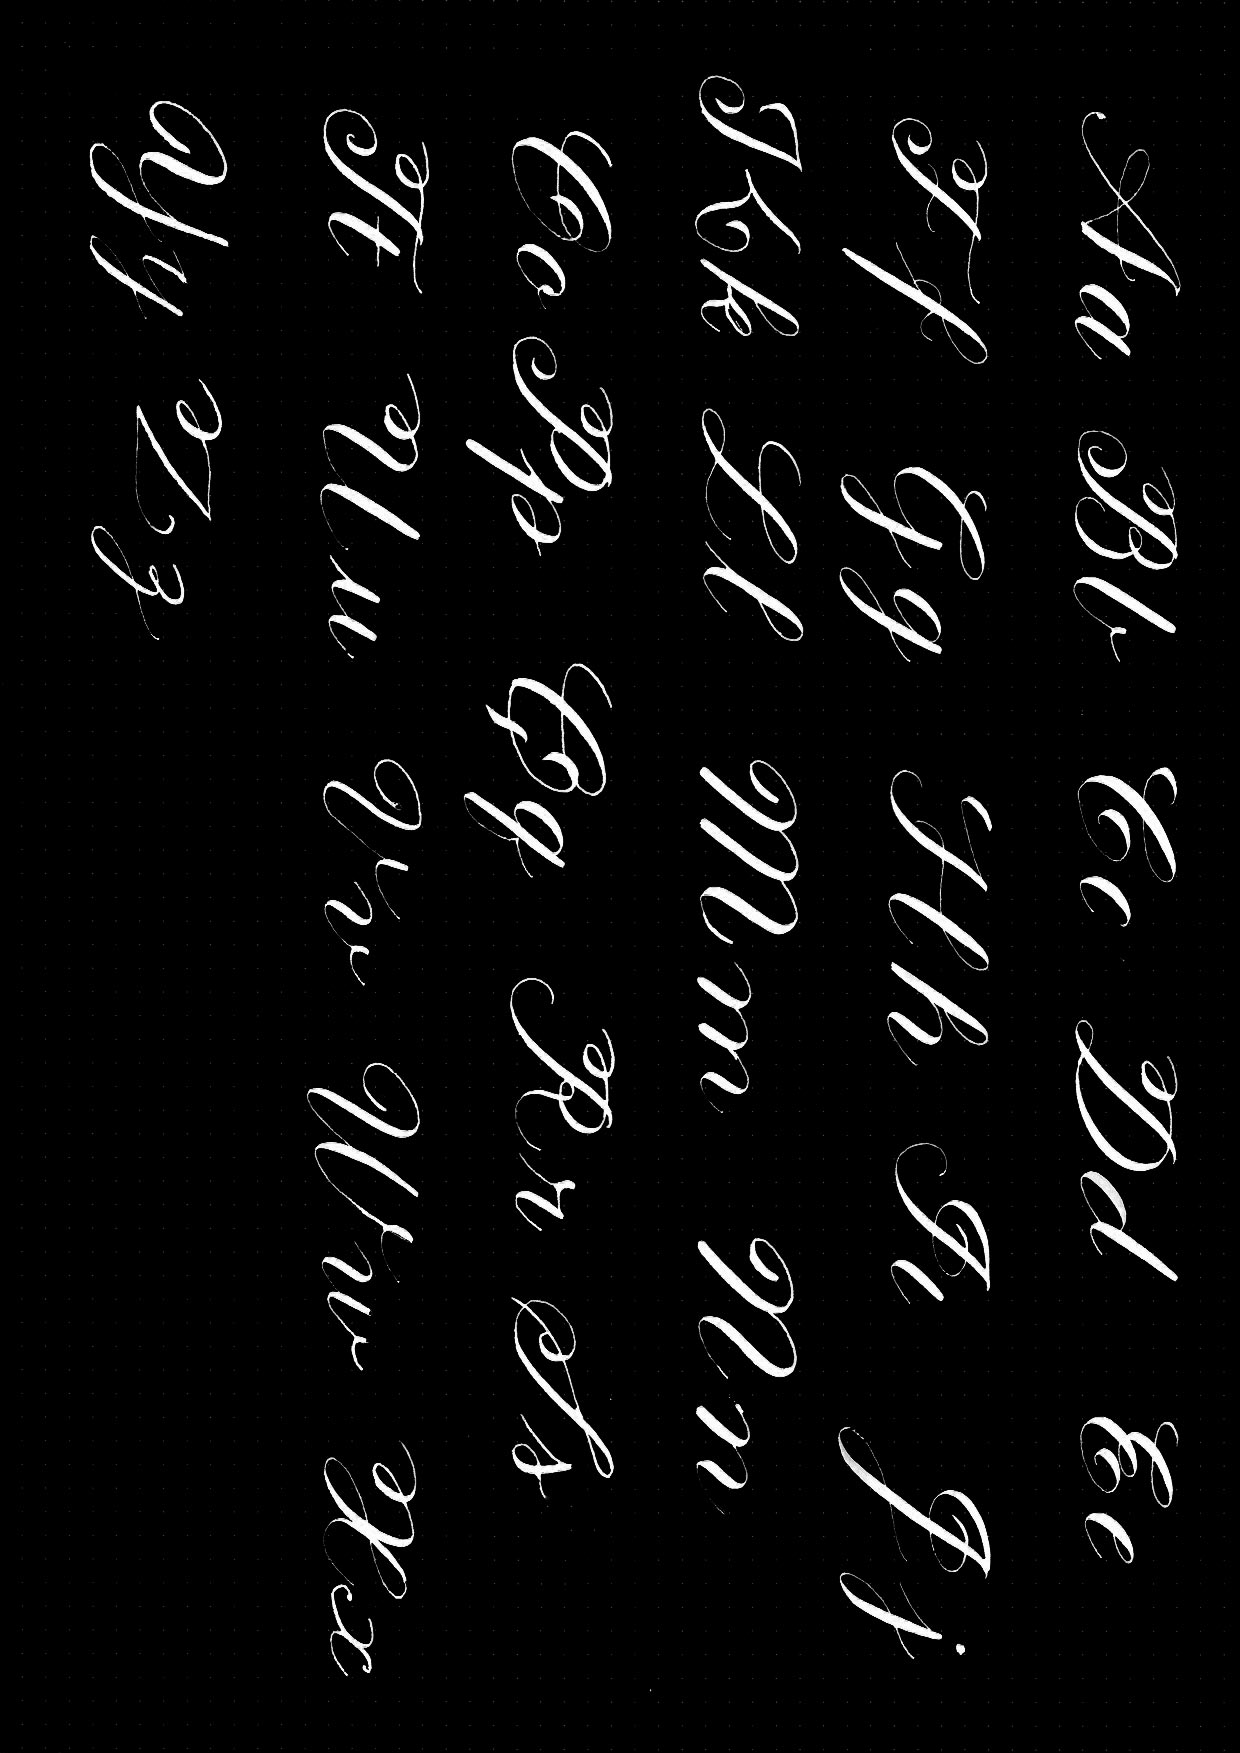 Aa Bb Cc Dd Ee
Ff Gg Hh Ii Jj
Kk Ll Mm Nn
Oo Pp Qq Rr Ss
Tt Uu Vv Ww Xx
Yy Zz